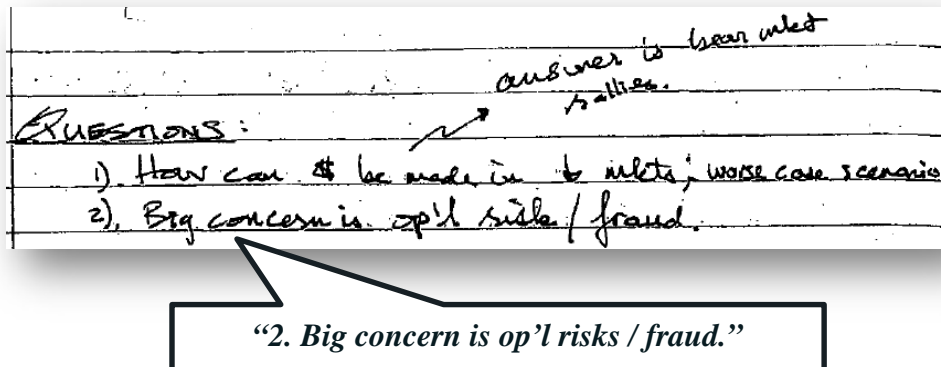 answer is bear mket
rallies.
QUESTIONS:
1). How can $ be made in ↓ mkts; worse case scenarios
2). Big concern is op'l risk / fraud.
“2. Big concern is op’l risks / fraud.”